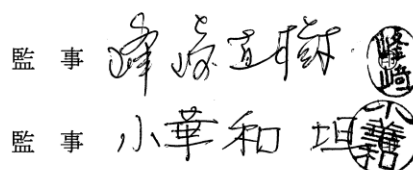 監事 峰崎直樹 峰崎
監事 小華和坦 小華和